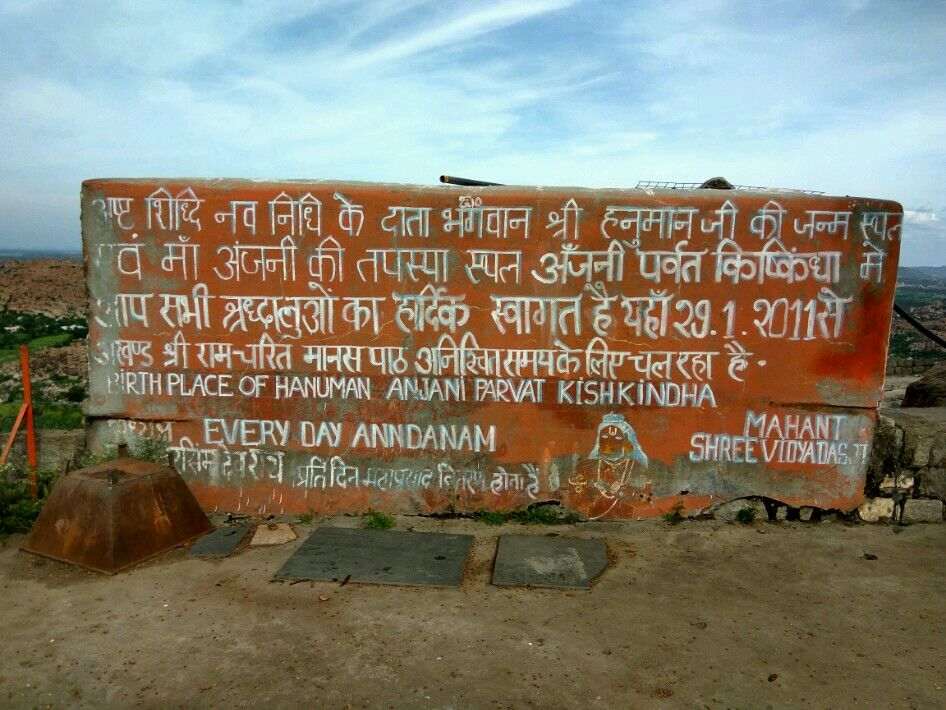 अष्ट शिध्दि नव निधि के दाता भगवान श्री हनुमान जी की जन्म स्थल
एवं माँ अंजनी की तपस्या स्थल अँजनी पर्वत किष्किंधा में
आप सभी श्रध्दालुओं का हार्दिक स्वागत है यहाँ 29.1.2011 से
अखण्ड श्री राम-चरित मानस पाठ अनिश्चित समय के लिए चल रहा है.
BIRTH PLACE OF HANUMAN ANJANI PARVAT KISHKINDHA
EVERY DAY ANNDANAM
MAHANT
SHREE VIDYADAS.JI
प्रति दिन महाप्रसाद वितरण होता है